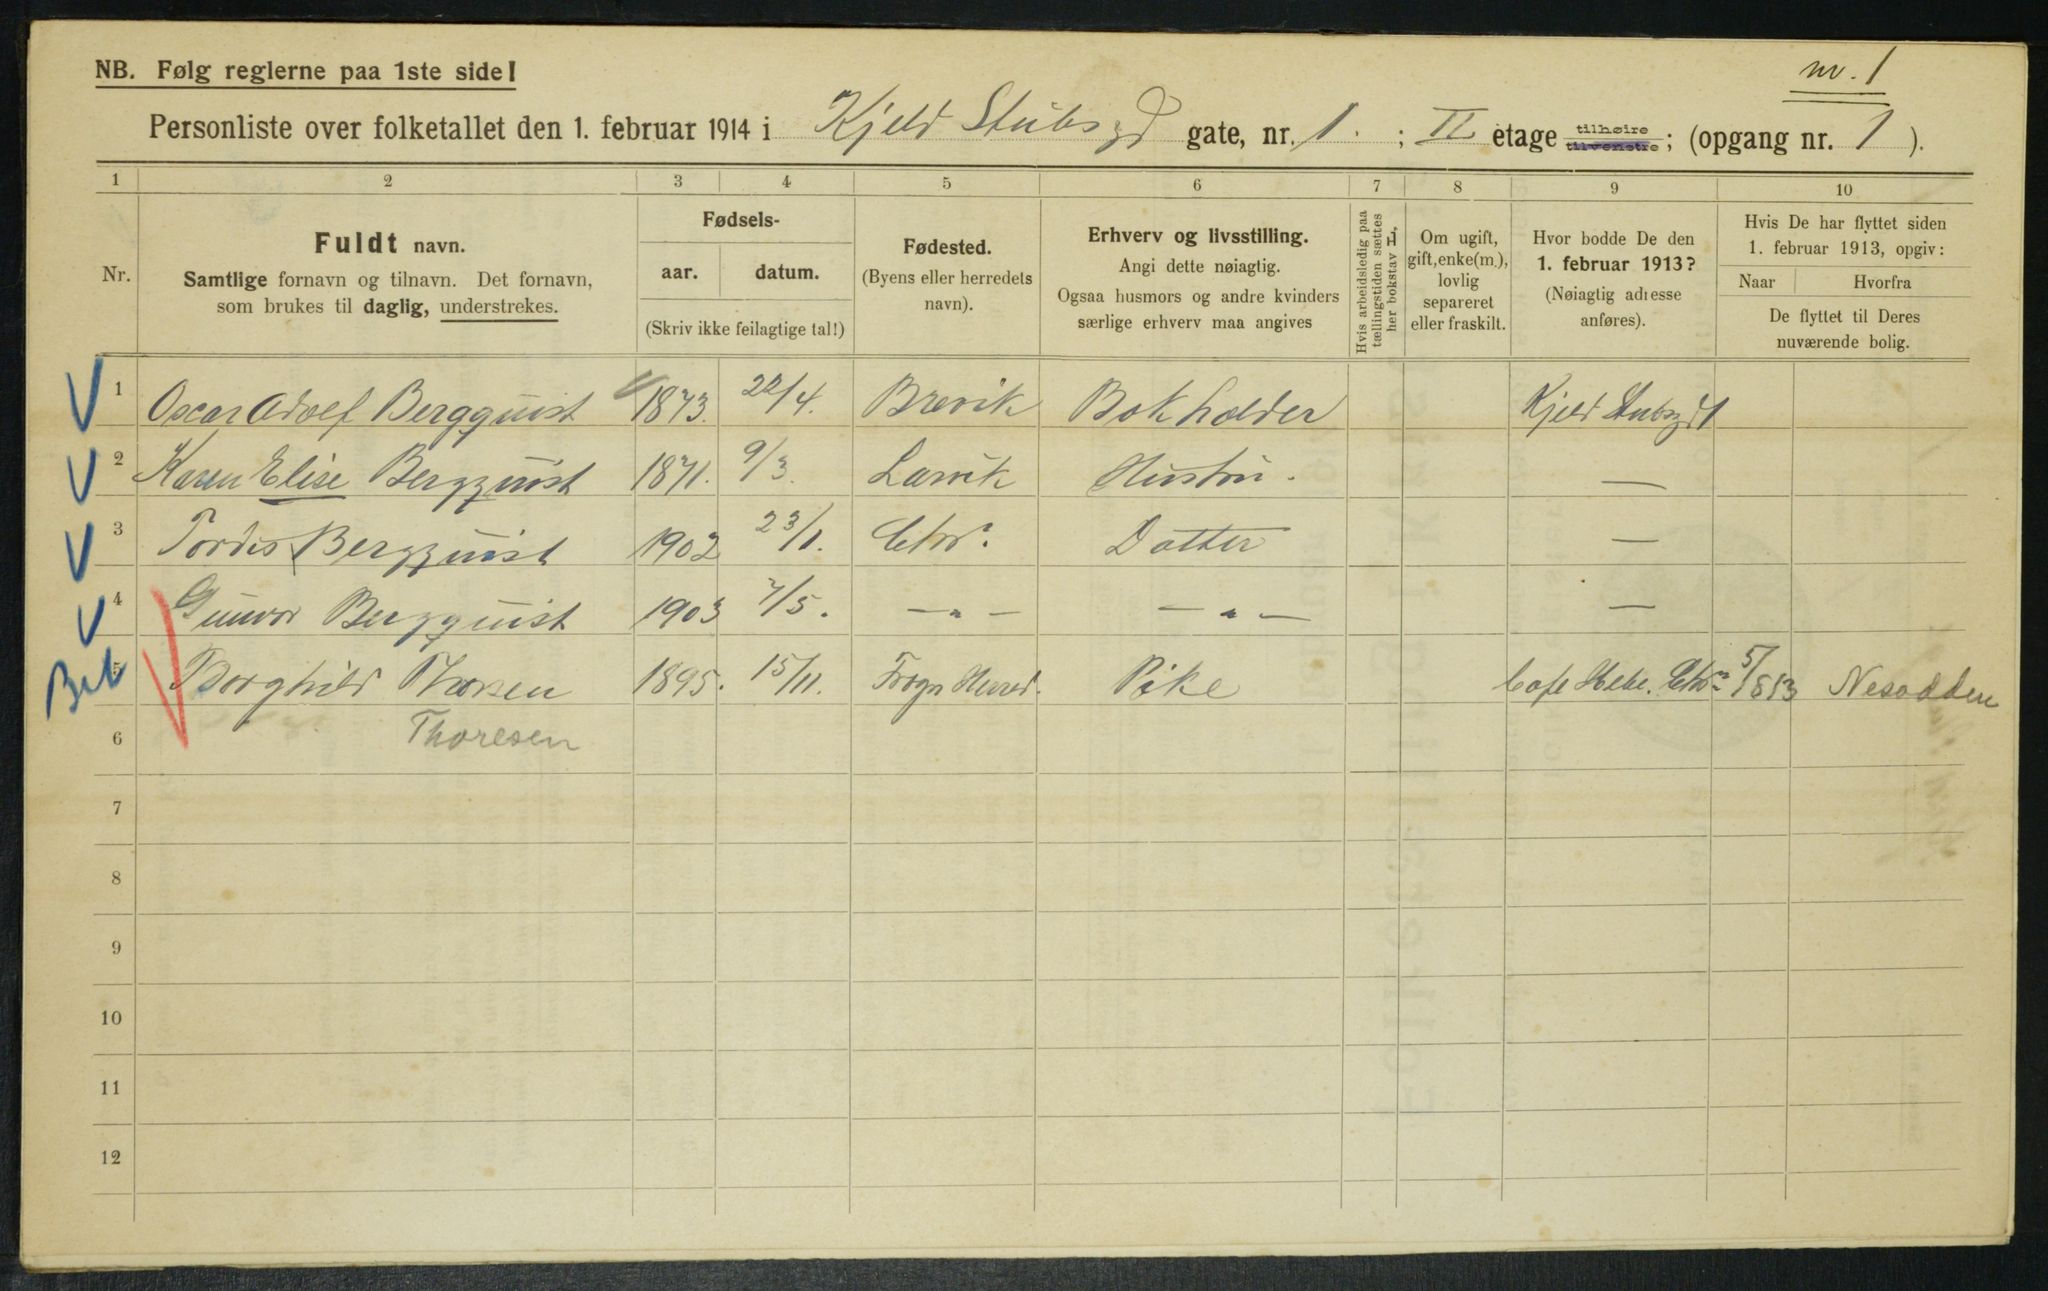 nr. 1
NB. Følg reglerne paa 1ste side!
Personliste over folketallet den 1. februar 1914 i Kjeld Stubsgd gate, nr. 1. ; II etage tilhøire tilvenstre; (opgang nr. 1 ).
1 2 3 4 5 6 7 8 9 10
Nr.
Fuldt navn.
Samtlige fornavn og tilnavn. Det fornavn,
som brukes til daglig, understrekes.
Fødsels-
aar. datum.
(Skriv ikke feilagtige tal!)
Fødested.
(Byens eller herredets
navn).
Erhverv og livsstilling.
Angi dette nøiagtig.
Ogsaa husmors og andre kvinders
særlige erhverv maa angives
Hvis arbeidsledig paa
tællingstiden sættes
her bokstav L,
Om ugift,
gift, enke(m.),
lovlig
separeret
eller fraskilt.
Hvor bodde De den
1. februar 1913?
(Nøiagtig adresse
anføres).
Hvis De har flyttet siden
1. februar 1913, opgiv:
Naar Hvorfra
De flyttet til Deres
nuværende bolig.
1 Oscar Adolf Bergquist 1873. 22/4. Brevik Bokholder Kjeld Stubsgd 1
2 Karen Elise Bergquist 1871. 9/3. Larvik Hustru. —
3 Tordis Bergquist 1902 23/1. Chr. Datter —
4 Gunvor Bergquist 1903 7/5. — " — — " — —
5 Borghild Thorsen 1895. 15/11. Frogn Herred. Pike Cafe Hebe. Chr. 5/1813 Nesodden
6 Thoresen
7
8
9
10
11
12